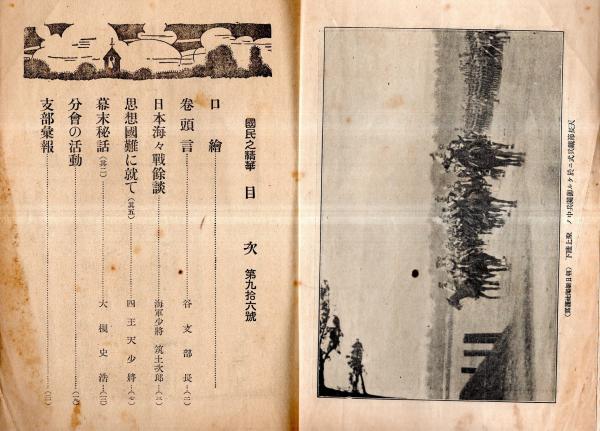 天長節觀兵式ニ於ケル御閱兵中ノ 聖上陛下
國民之精華 目次 第九拾六號
口繪
卷頭言 谷支部長(一)
日本海々戰餘談 海軍少將 筑土次郎(二)
思想國難に就て(其五) 四王天少將(七)
幕末秘話(其二) 大槻史浩
分會の活動
支部彙報